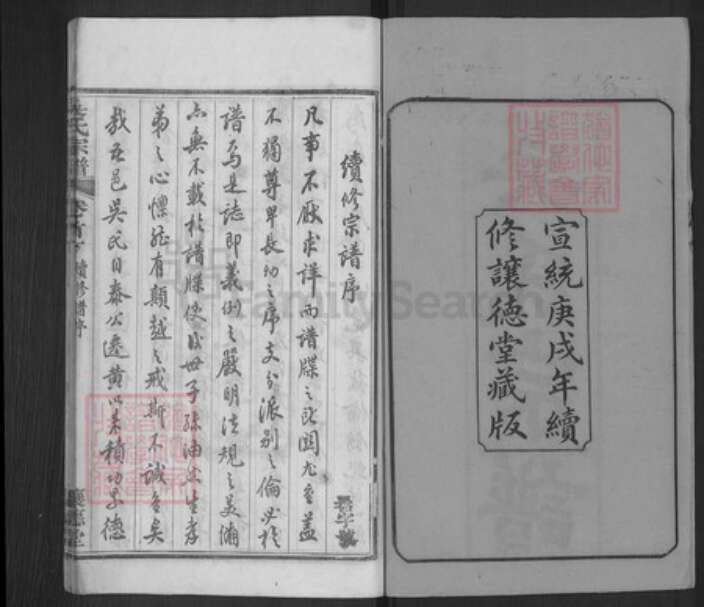 宣統庚戌年續
修讓德堂藏版
續修宗譜序
凡事不厭求詳而譜牒之所關尤重蓋
不獨尊卑長幼之序支分派別之倫必於
譜焉是誌即義例之嚴明法規之美備
亦無不載於譜牒使後世子孫油然生孝
弟之心懍然有顛越之戒斯不誠重矣
哉吾邑吳氏自泰公遷黄以来積功累德
吳氏宗譜
卷首下 續修譜序
讓德堂
FamilySearch